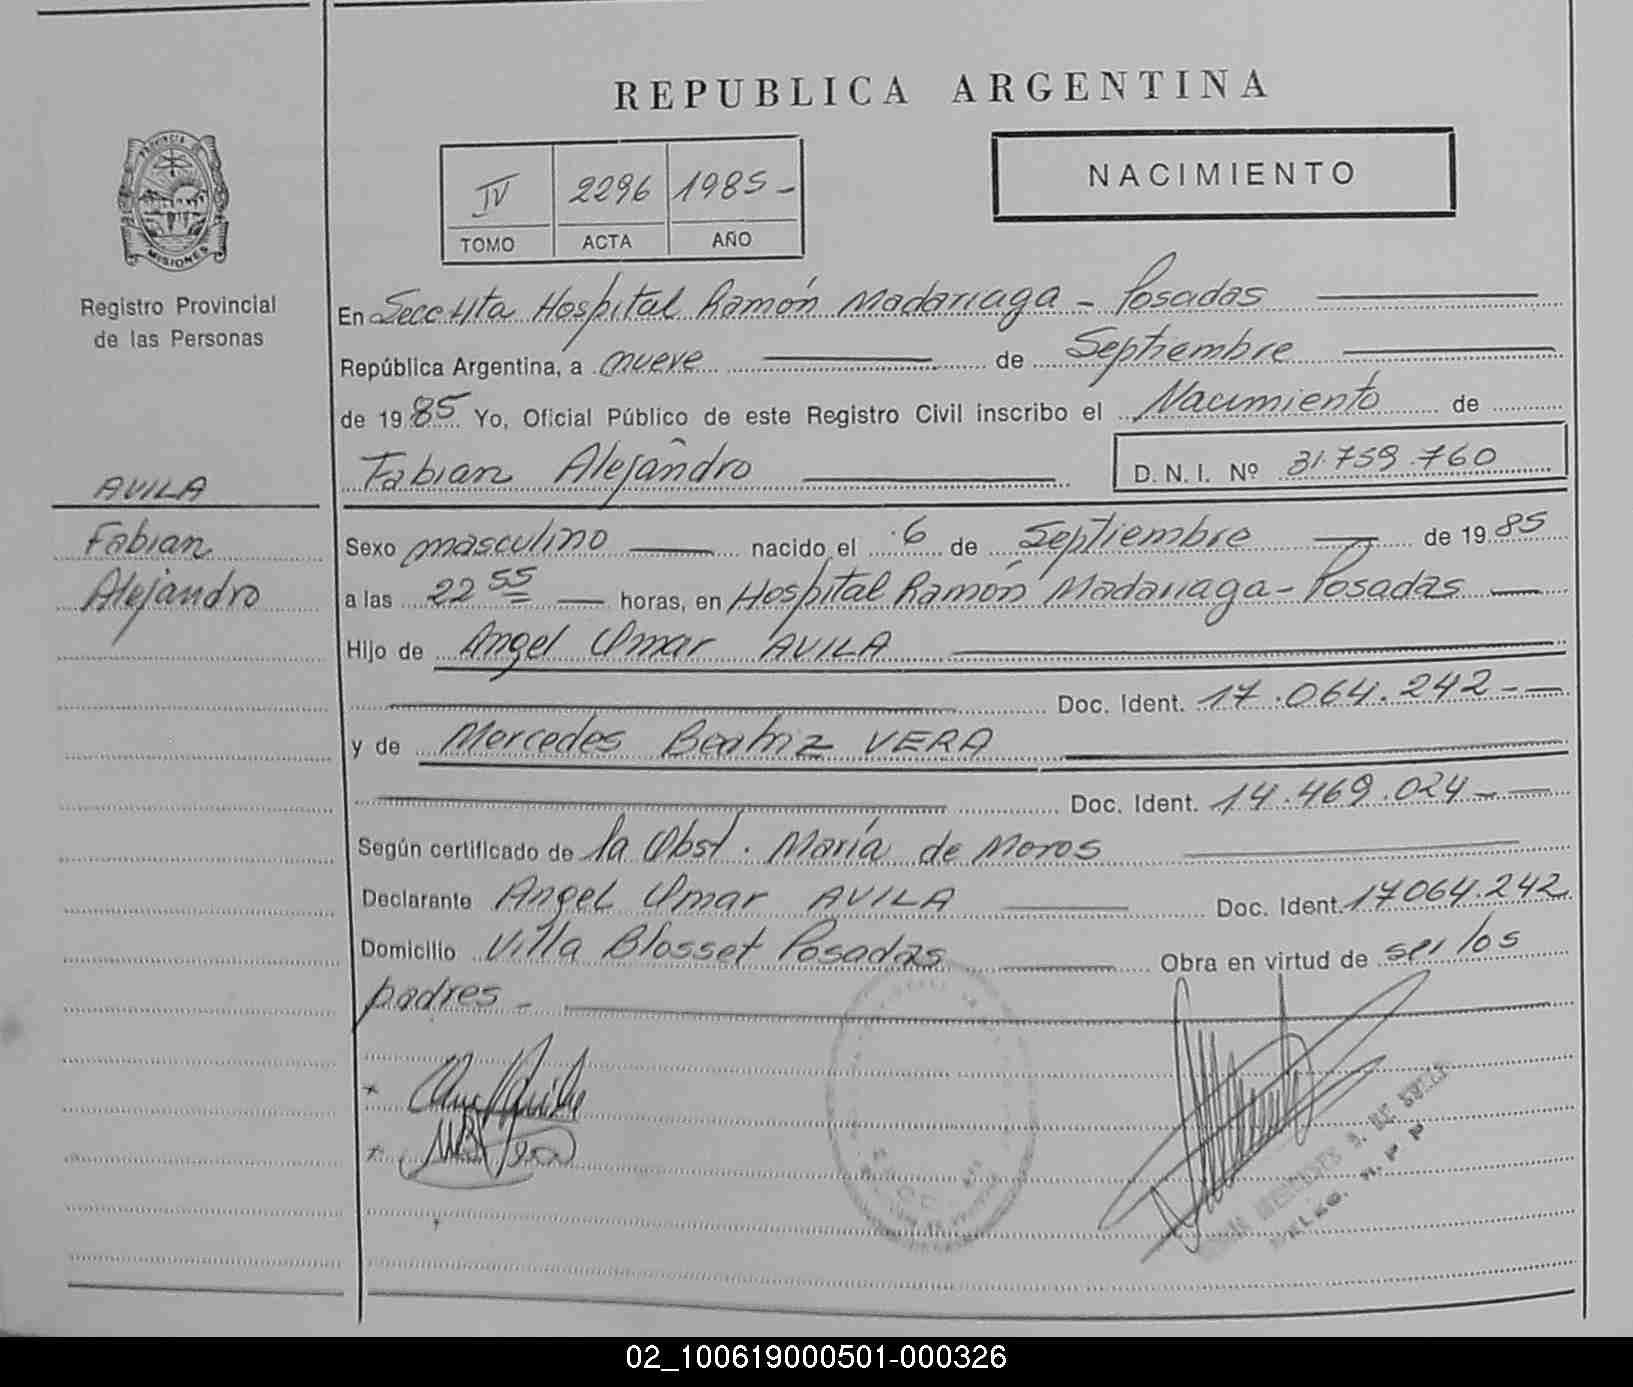 REPUBLICA ARGENTINA
PROVINCIA DE
MISIONES
Registro Provincial
de las Personas
IV 2296 1985-
TOMO ACTA AÑO
NACIMIENTO
En Secc 4ta Hospital Ramón Madariaga - Posadas
República Argentina, a nueve de Septiembre
de 1985 Yo, Oficial Público de este Registro Civil inscribo el Nacimiento de
Fabian Alejandro D. N. I. Nº 31.759.760
AVILA
Fabian
Alejandro
Sexo masculino nacido el 6 de Septiembre de 1985
a las 22 55 horas, en Hospital Ramón Madariaga - Posadas
Hijo de Angel Omar AVILA
Doc. Ident. 17.064.242--
y de Mercedes Beatriz VERA
Doc. Ident. 14.469.024--
Según certificado de la Obst. María de Moros
Declarante Angel Omar AVILA Doc. Ident. 17064.242
Domicilio Villa Blosset Posadas Obra en virtud de ser los
padres -
02_100619000501-000326